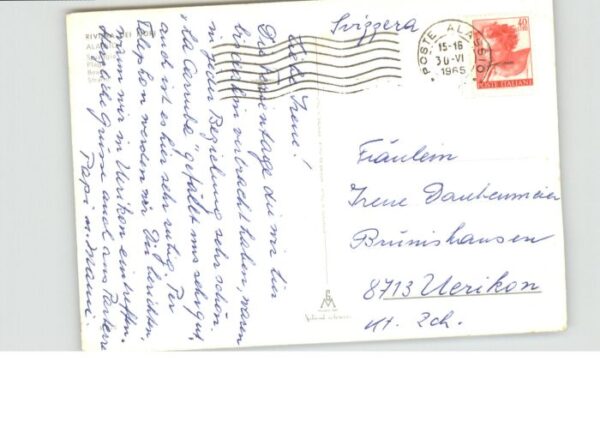 Svizzera
POSTE ALASSIO
15-16
30-VI
1965
40
POSTE ITALIANE
RIVIERA DEI
Liebe Irene!
Die Ferientage die wir bis
verbracht haben, waren
in jeder Beziehung sehr schön.
"La Caruba" gefällt uns sehr gut,
und ist es hier sehr ruhig. Per
Telephon werden wir Dir berichten,
wann wir in Uerikon eintreffen.
Herzliche Grüsse auch ans Parterre
Papi u. Mami.
Fräulein
Irene Daubenmeier
Brünishausen
8713 Uerikon
Kt. Zch.